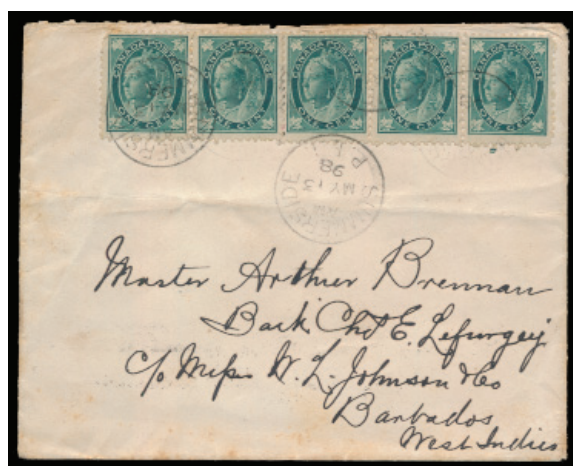 CANADA POSTAGE ONE CENT CANADA POSTAGE ONE CENT CANADA POSTAGE ONE CENT CANADA POSTAGE ONE CENT CANADA POSTAGE ONE CENT
SUMMERSIDE
MY 13
98
P.E.I.
Master Arthur Brennan
Bark Chs E. Lefurgey
c/o Mess W. L. Johnson & Co
Barbados
West Indies